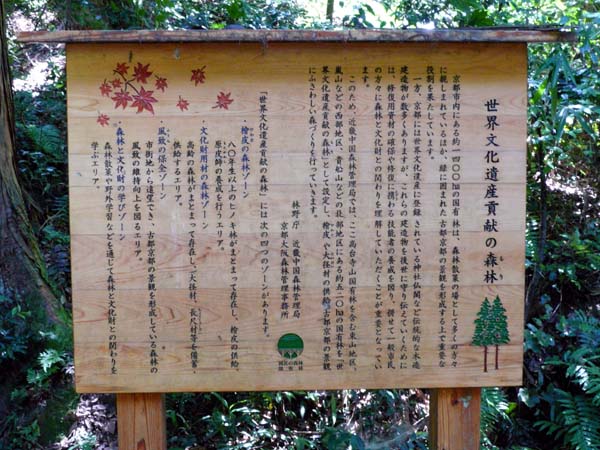 世界文化遺産貢献の森林
京都市内にある約一四〇〇haの国有林は、森林散策の場として多くの方々
に親しまれているほか、緑に囲まれた古都京都の景観を形成する上で重要な
役割を果たしています。
一方、京都には世界文化遺産に登録されている神社仏閣など伝統的な木造
建造物が数多くありますが、これらの建造物を後世に守り伝えていくために
は、修復用資材の確保や修復に携わる技能者の養成を図り、併せて一般市民
の方々に森林と文化財との関わりを理解していただくことが重要となってい
ます。
このため、近畿中国森林管理局では、ここ高台寺山国有林を含む東山地区、
嵐山などの西部地区、貴船山などの北部地区にある約五一〇haの国有林を「世
界文化遺産貢献の森林」として設定し、檜皮や大径材の供給、古都京都の景観
にふさわしい森づくりを行っています。
林野庁 近畿中国森林管理局
京都大阪森林管理事務所
「世界文化遺産貢献の森林」には次の四つのゾーンがあります。
・檜皮の森林ゾーン
八〇年生以上のヒノキ林がまとまって存在し、檜皮の供給、
原皮師の養成を行うエリア。
・文化財用材の森林ゾーン
高齢の森林がまとまって存在し、大径材、長尺材等を備蓄・
供給するエリア。
・風致の保全ゾーン
市街地から遠望でき、古都京都の景観を形成している森林の
風致の維持向上を図るエリア。
・森林と文化財の学びゾーン
森林散策や野外学習などを通して森林と文化財との関わりを
学ぶエリア。